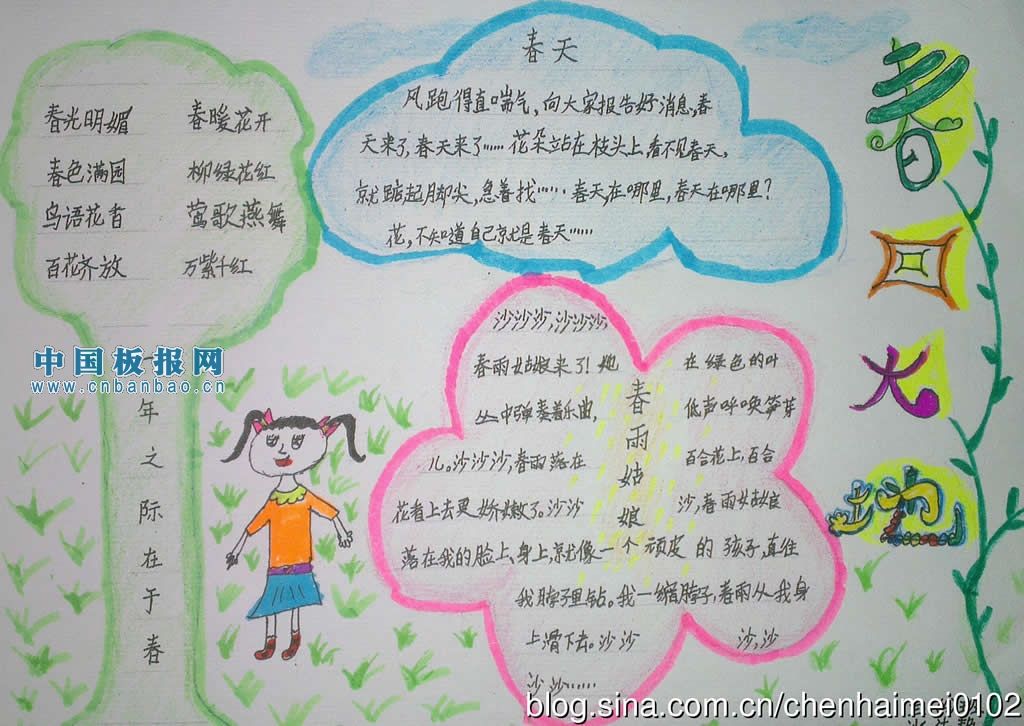 春光明媚 春暖花开
春色满园 柳绿花红
鸟语花香 莺歌燕舞
百花齐放 万紫千红
一
年
之
际
在
于
春
中国板报网
www.cnbanbao.cn
春天
风跑得直喘气,向大家报告好消息,春
天来了,春天来了……花朵立站在枝头上看不见春天,
就踮起脚尖,急着找……春天,在哪里,春天在哪里?
花,不知道自己就是春天……
春雨姑娘
沙沙沙,沙沙沙,
春雨姑娘来了!她 在绿色的叶
丛中弹奏着乐曲, 低声呼唤笋芽
儿。沙沙沙,春雨落在 百合花上,百合
花看上去更娇嫩了。沙沙 沙,春雨姑娘
落在我的脸上、身上,就像一个顽皮的孩子,直往
我脖子里钻。我一缩脖子,春雨从我身
上滑下去。沙沙 沙,沙
沙沙……
春
回
大
地
blog.sina.com.cn/chenhaimei0102